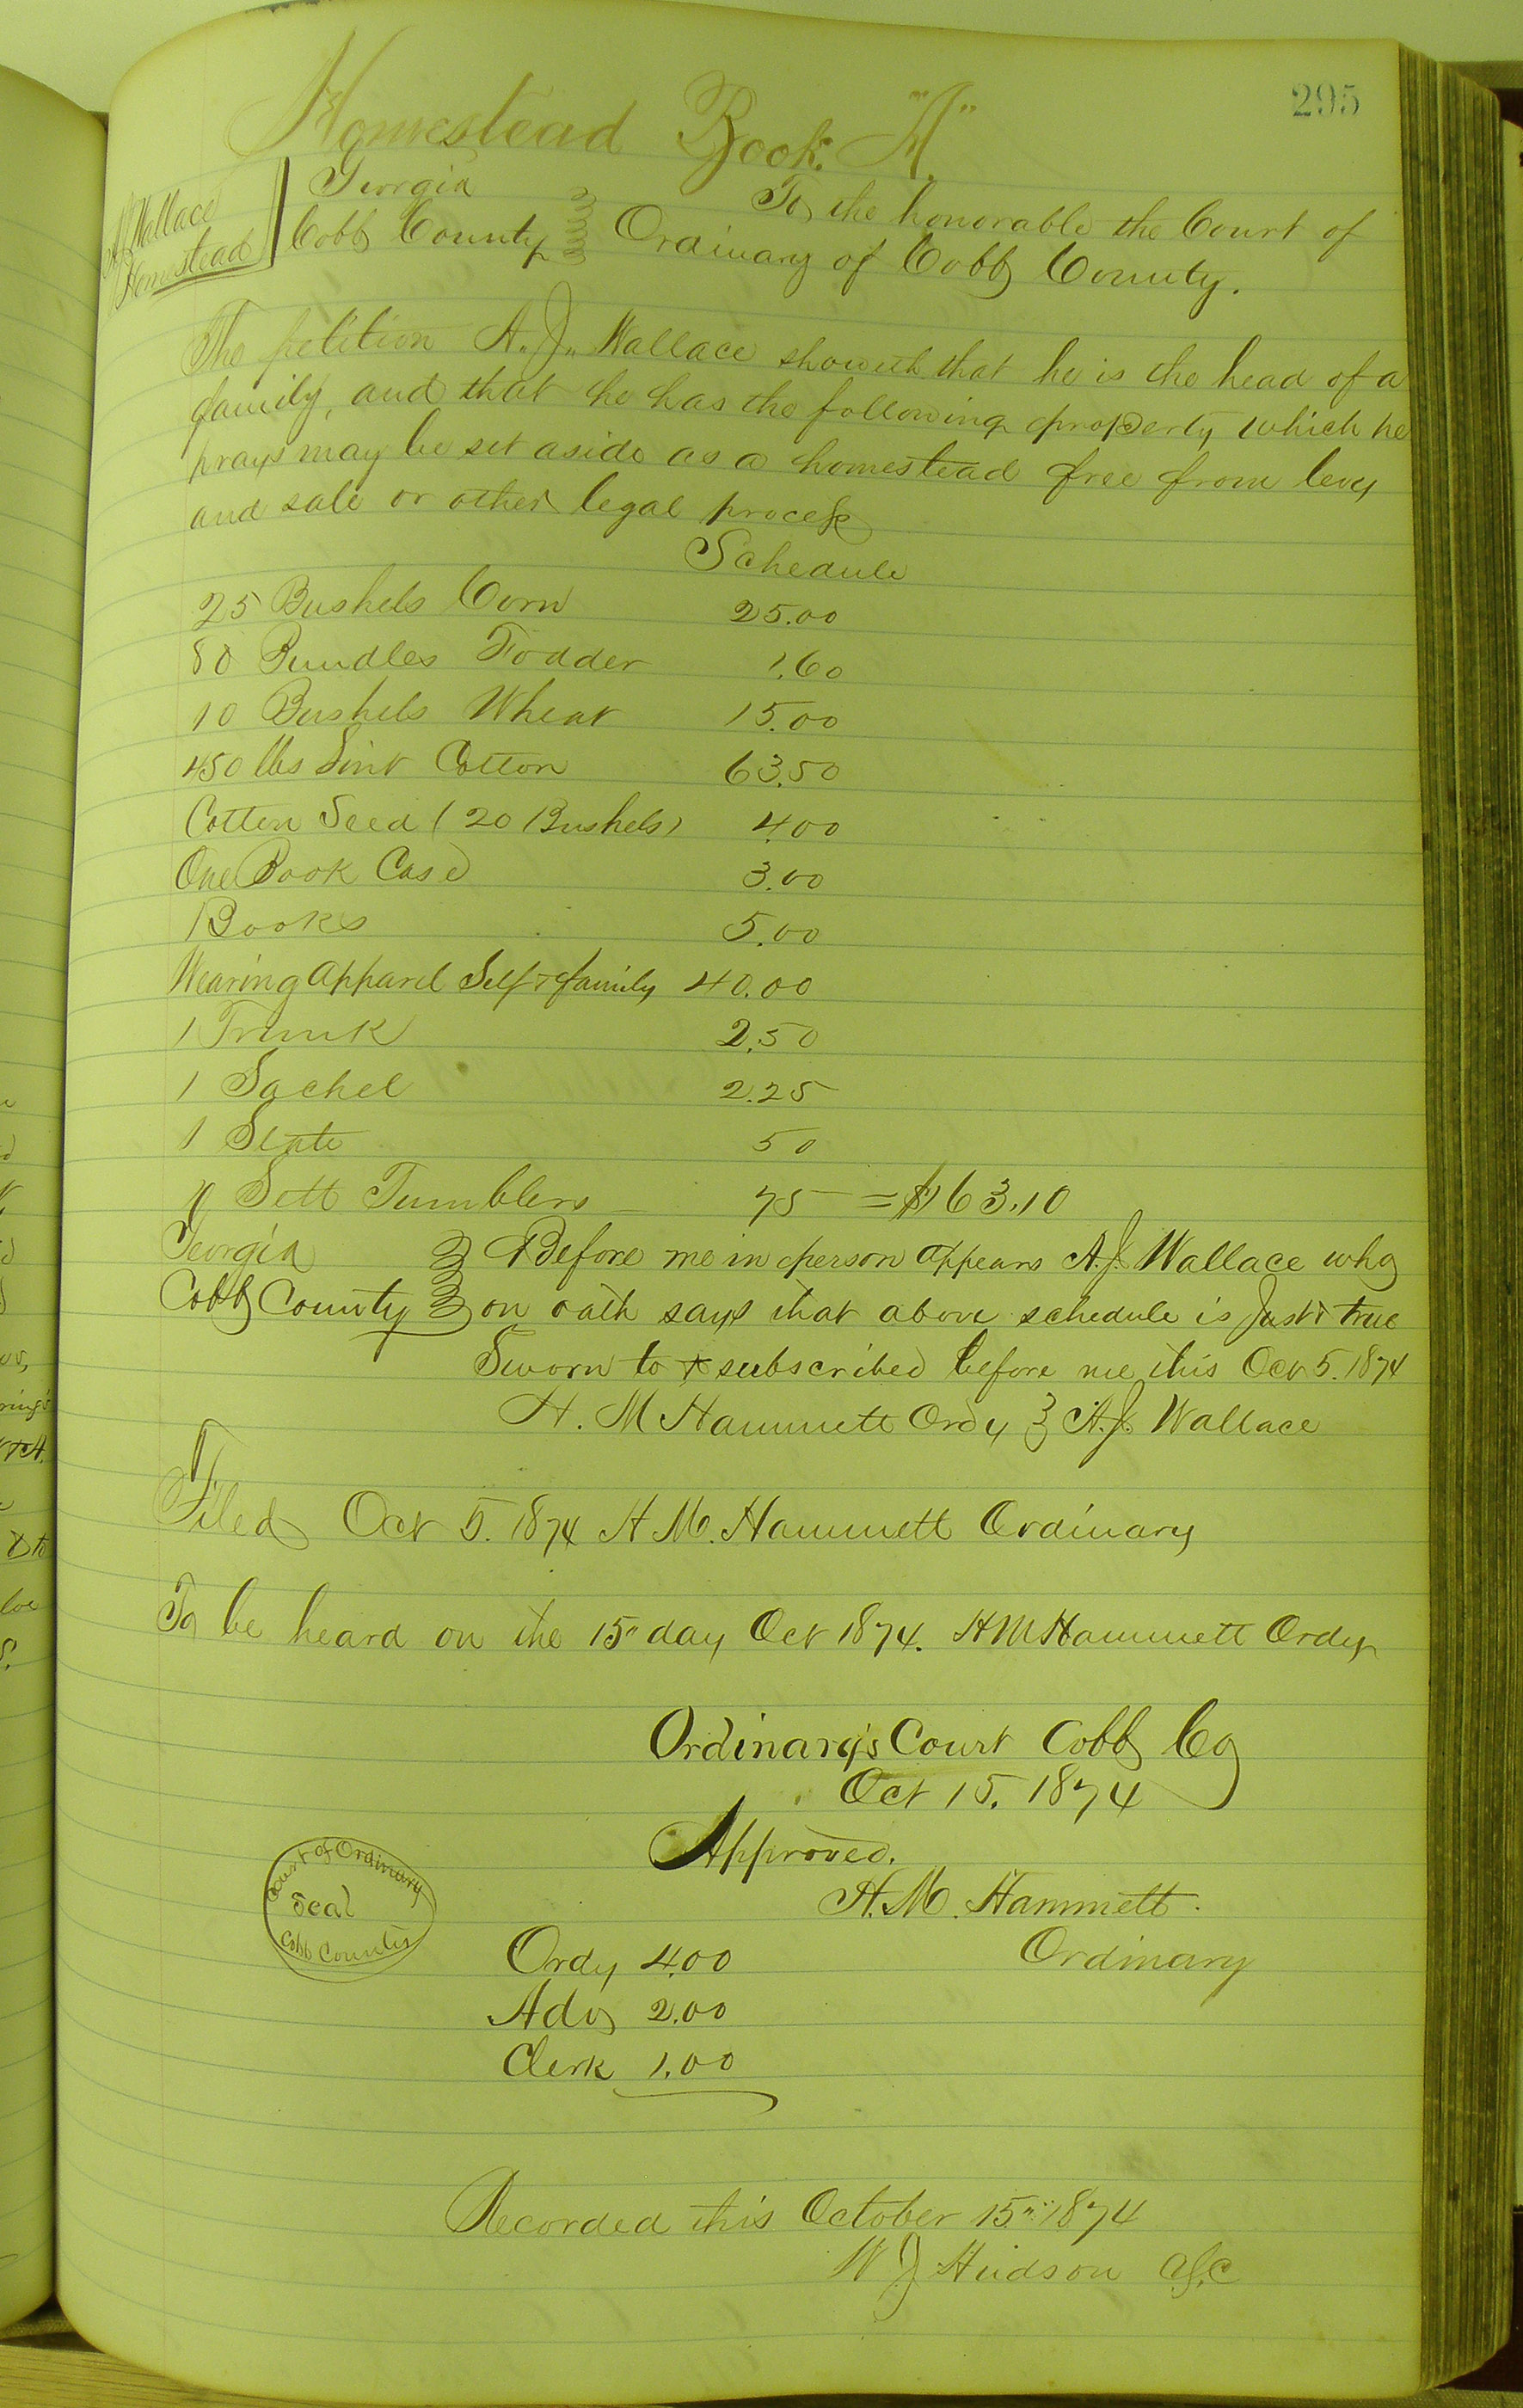 295
Homestead Book "A"
A J Wallace
Homestead
Georgia
Cobb County
To the honorable the Court of
Ordinary of Cobb County.
The petition A. J. Wallace showeth that he is the head of a
family, and that he has the following property which he
prays may be set aside as a homestead free from levy
and sale or other legal process
Schedule
25 Bushels Corn 25.00
80 Bundles Fodder 1.60
10 Bushels Wheat 15.00
450 lbs Lint Cotton 63.50
Cotten Seed (20 Bushels) 4.00
One Book Case 3.00
Books 5.00
Wearing apparel Self & family 40.00
1 Trunk 2.50
1 Sachel 2.25
1 Slate 50
1 Sett Tumblers 75 = $163.10
Georgia Before me in person appears A. J. Wallace who
Cobb County on oath says that above schedule is Just & true
Sworn to & subscribed before me this Oct 5. 1874
H. M Hammett Ordy A. J. Wallace
Filed Oct 5. 1874 H M. Hammett Ordinary
To be heard on the 15" day Oct 1874. H M Hammett Ordy
Ordinary's Court Cobb Co
Oct 15. 1874
Approved.
H. M. Hammett.
Ordinary
Court of Ordinary
Seal
Cobb County
Ordy 4.00
Adv 2.00
Clerk 1.00
Recorded this October 15" 1874
W J Hudson